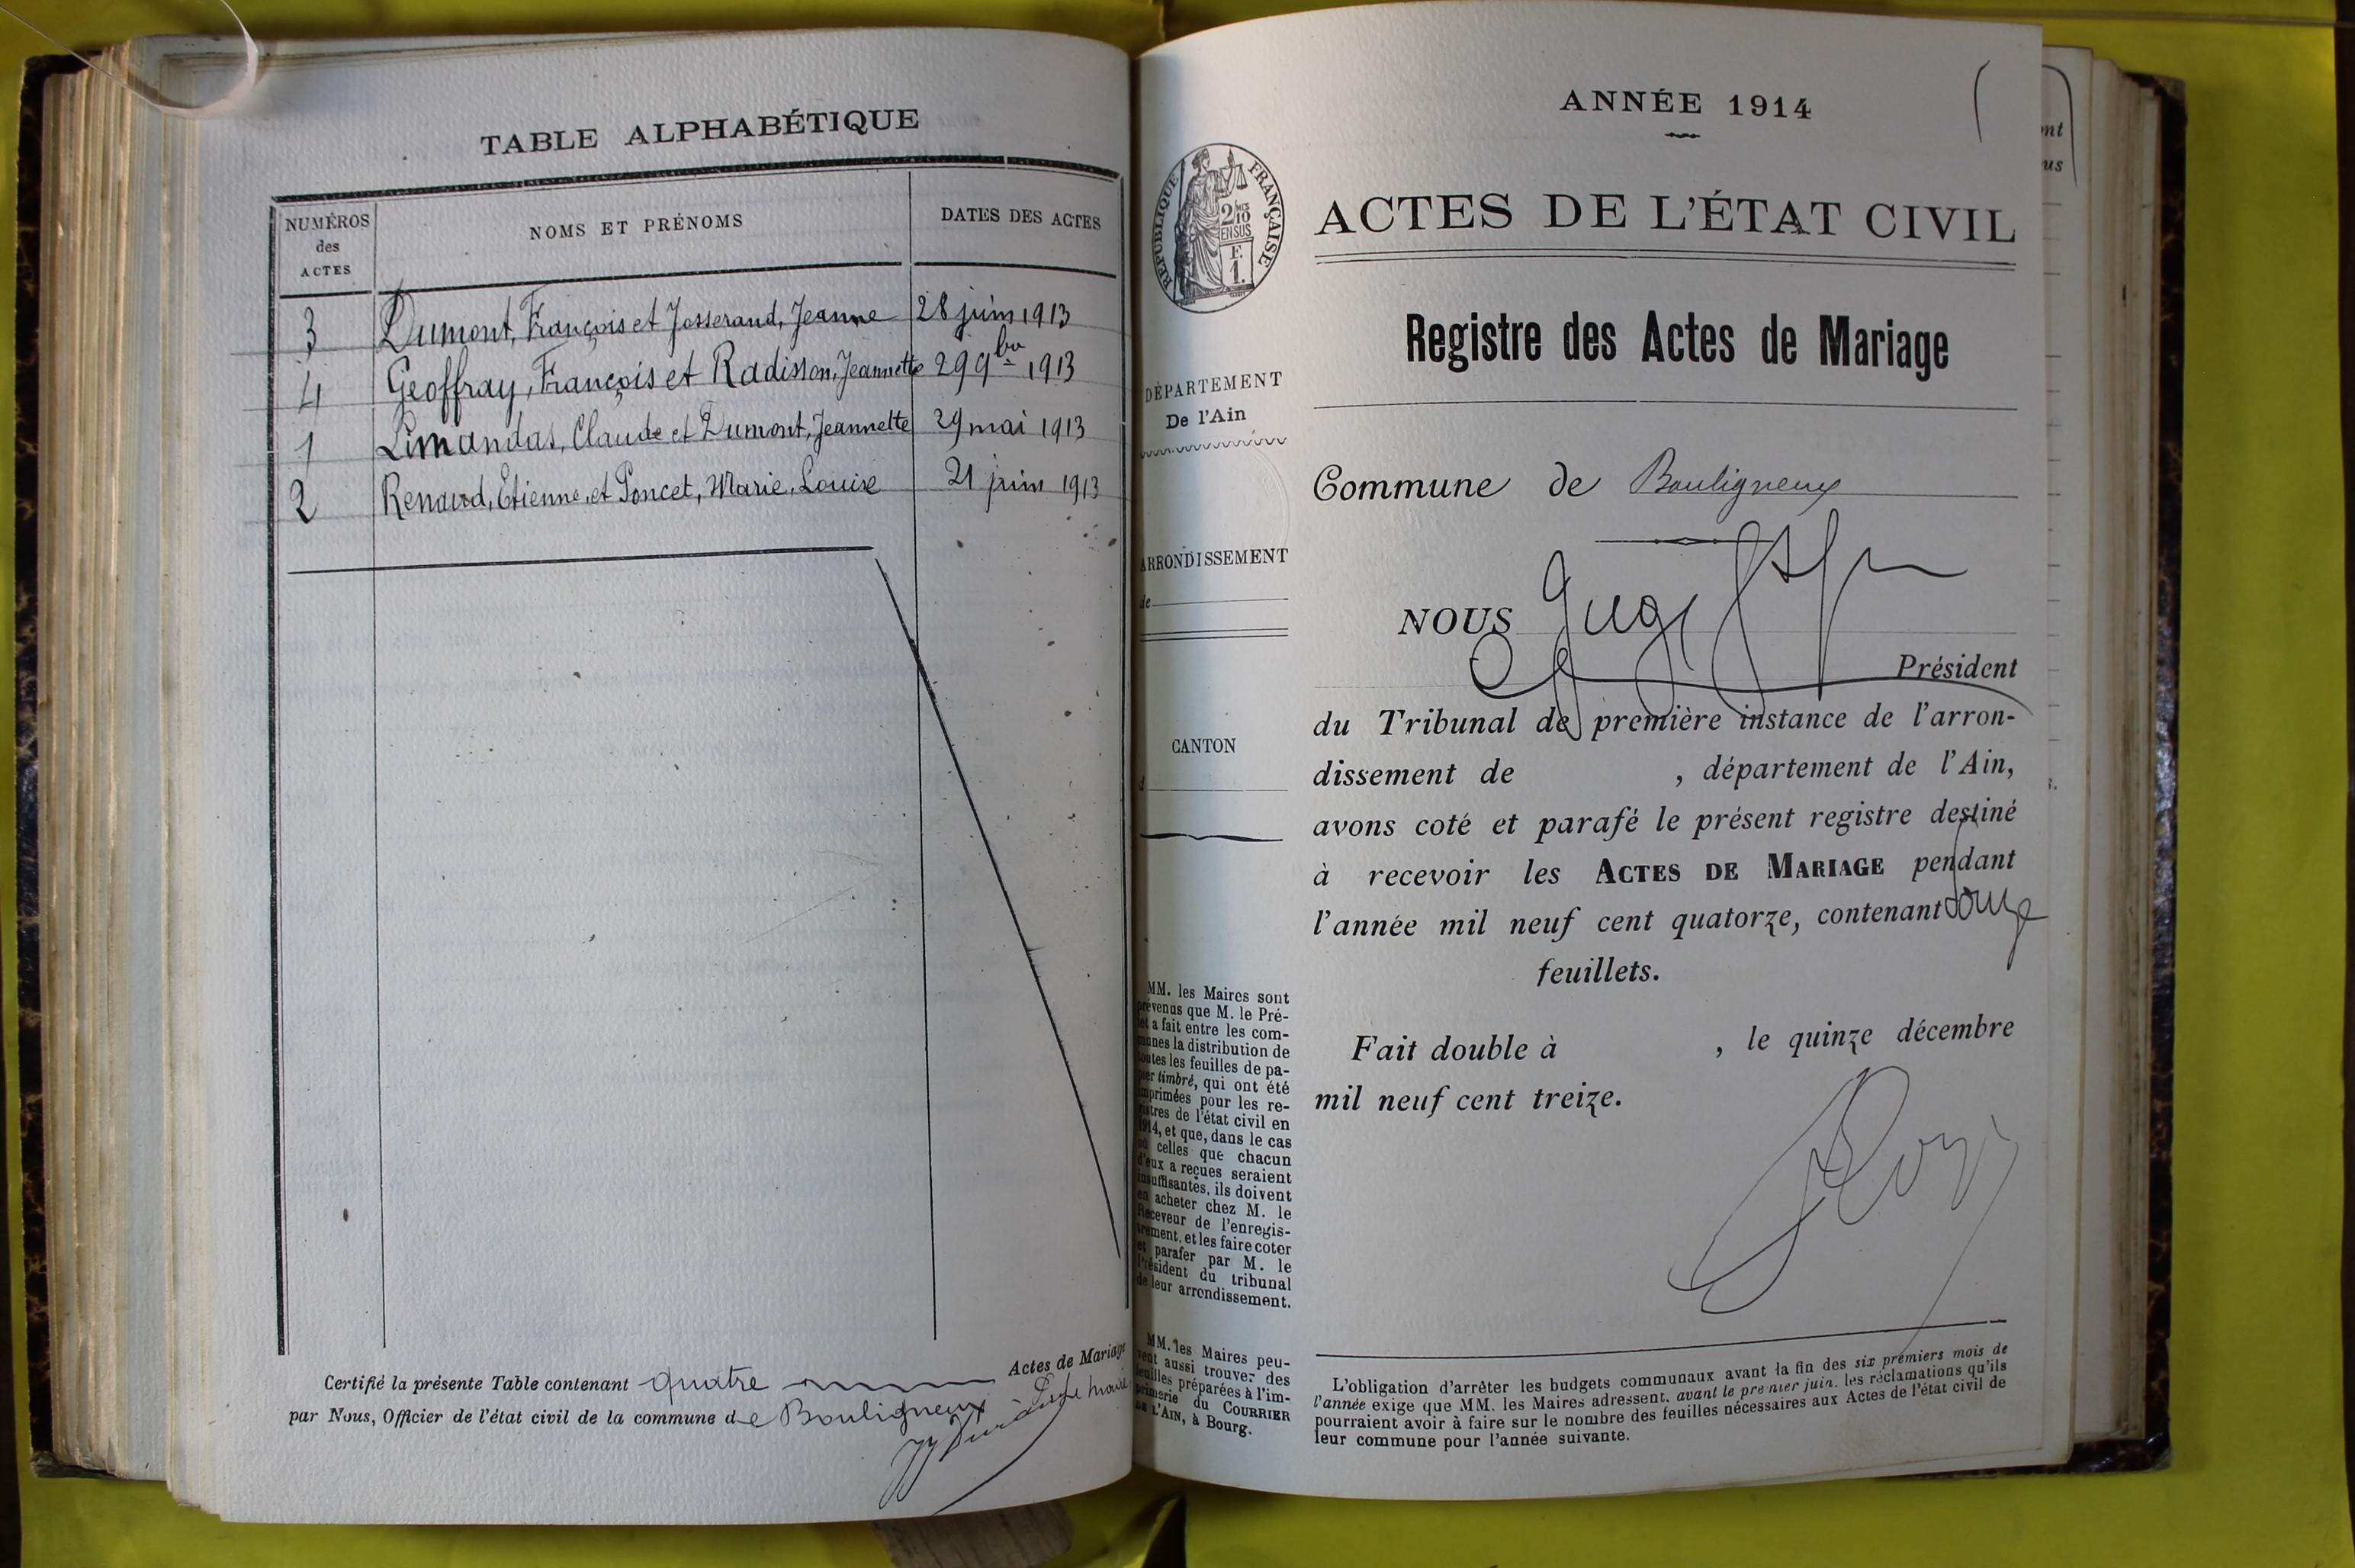 TABLE ALPHABÉTIQUE
NUMÉROS
des
ACTES
NOMS ET PRÉNOMS
DATES DES ACTES
3 Dumont, François et Josserand, Jeanne 28 juin 1913
4 Geoffray, François et Radisson, Jeannette 29 9bre 1913
1 Limandas, Claude et Dumont, Jeannette 29 mai 1913
2 Renaud, Etienne, et Poncet, Marie, Louise 21 juin 1913
Certifié la présente Table contenant quatre Actes de Mariage
par Nous, Officier de l'état civil de la commune de Bouligneux
ANNÉE 1914
RÉPUBLIQUE FRANÇAISE
2/10
EN SUS
F.
1.
ACTES DE L'ÉTAT CIVIL
Registre des Actes de Mariage
DÉPARTEMENT
De l'Ain
ARRONDISSEMENT
de
CANTON
d
MM. les Maires sont
prévenus que M. le Pré-
fet a fait entre les com-
munes la distribution de
toutes les feuilles de pa-
pier timbré, qui ont été
imprimées pour les re-
gistres de l'état civil en
1914, et que, dans le cas
où celles que chacun
d'eux a reçues seraient
insuffisantes, ils doivent
en acheter chez M. le
Receveur de l'enregis-
trement, et les faire coter
et parafer par M. le
Président du tribunal
de leur arrondissement.
MM. les Maires peu-
vent aussi trouver des
feuilles préparées à l'im-
primerie du COURRIER
DE L'AIN, à Bourg.
Commune de Bouligneux
NOUS
Président
du Tribunal de première instance de l'arron-
dissement de , département de l'Ain,
avons coté et parafé le présent registre destiné
à recevoir les ACTES DE MARIAGE pendant
l'année mil neuf cent quatorze, contenant
feuillets.
Fait double à , le quinze décembre
mil neuf cent treize.
L'obligation d'arrêter les budgets communaux avant la fin des six premiers mois de
l'année exige que MM. les Maires adressent, avant le premier juin, les réclamations qu'ils
pourraient avoir à faire sur le nombre des feuilles nécessaires aux Actes de l'état civil de
leur commune pour l'année suivante.
nt
us